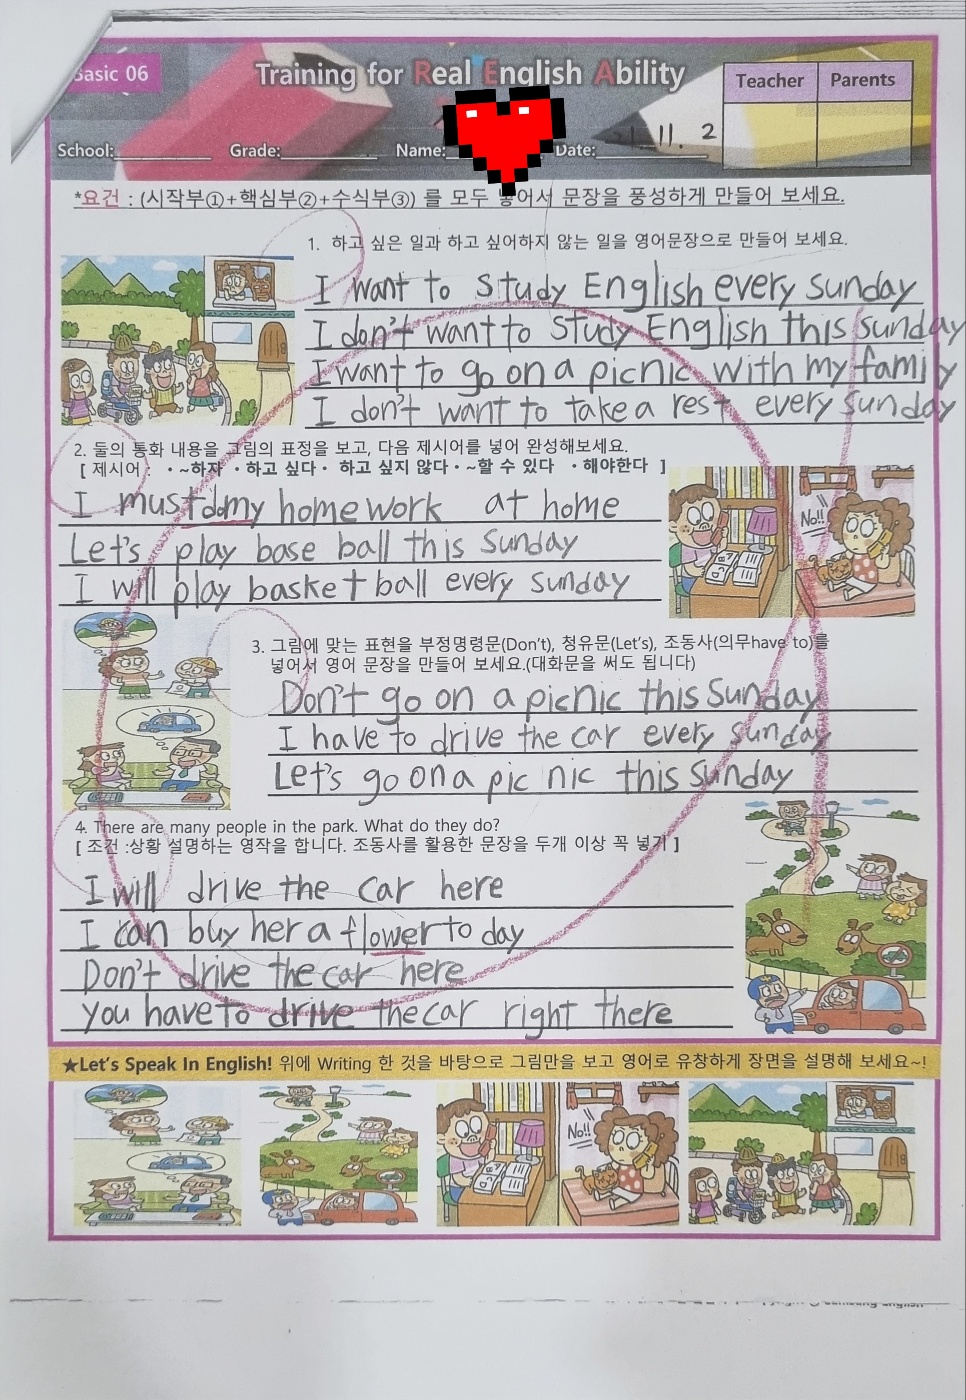 Basic 06
Training for Real English Ability
Teacher Parents
School: Grade: Name: Date: 11. 2
*요건 : (시작부①+핵심부②+수식부③) 를 모두 넣어서 문장을 풍성하게 만들어 보세요.
1. 하고 싶은 일과 하고 싶어하지 않는 일을 영어문장으로 만들어 보세요.
I want to study English every sunday
I don't want to study English this sunday
I want to go on a picnic with my family
I don't want to take a rest every sunday
2. 둘의 통화 내용을 그림의 표정을 보고, 다음 제시어를 넣어 완성해보세요.
[ 제시어 : ·~하자 ·하고 싶다· 하고 싶지 않다·~할 수 있다 ·해야한다 ]
I must do my home work at home
Let's play base ball this Sunday
I will play basket ball every sunday
No!!
3. 그림에 맞는 표현을 부정명령문(Don't), 청유문(Let's), 조동사(의무have to)를
넣어서 영어 문장을 만들어 보세요.(대화문을 써도 됩니다)
Don't go on a picnic this Sunday
I have to drive the car every sunday
Let's go on a pic nic this Sunday
4. There are many people in the park. What do they do?
[ 조건 :상황 설명하는 영작을 합니다. 조동사를 활용한 문장을 두개 이상 꼭 넣기 ]
I will drive the car here
I can buy her a flower to day
Don't drive the car here
You have to drive the car right there
★Let's Speak In English! 위에 Writing 한 것을 바탕으로 그림만을 보고 영어로 유창하게 장면을 설명해 보세요~!
No!!